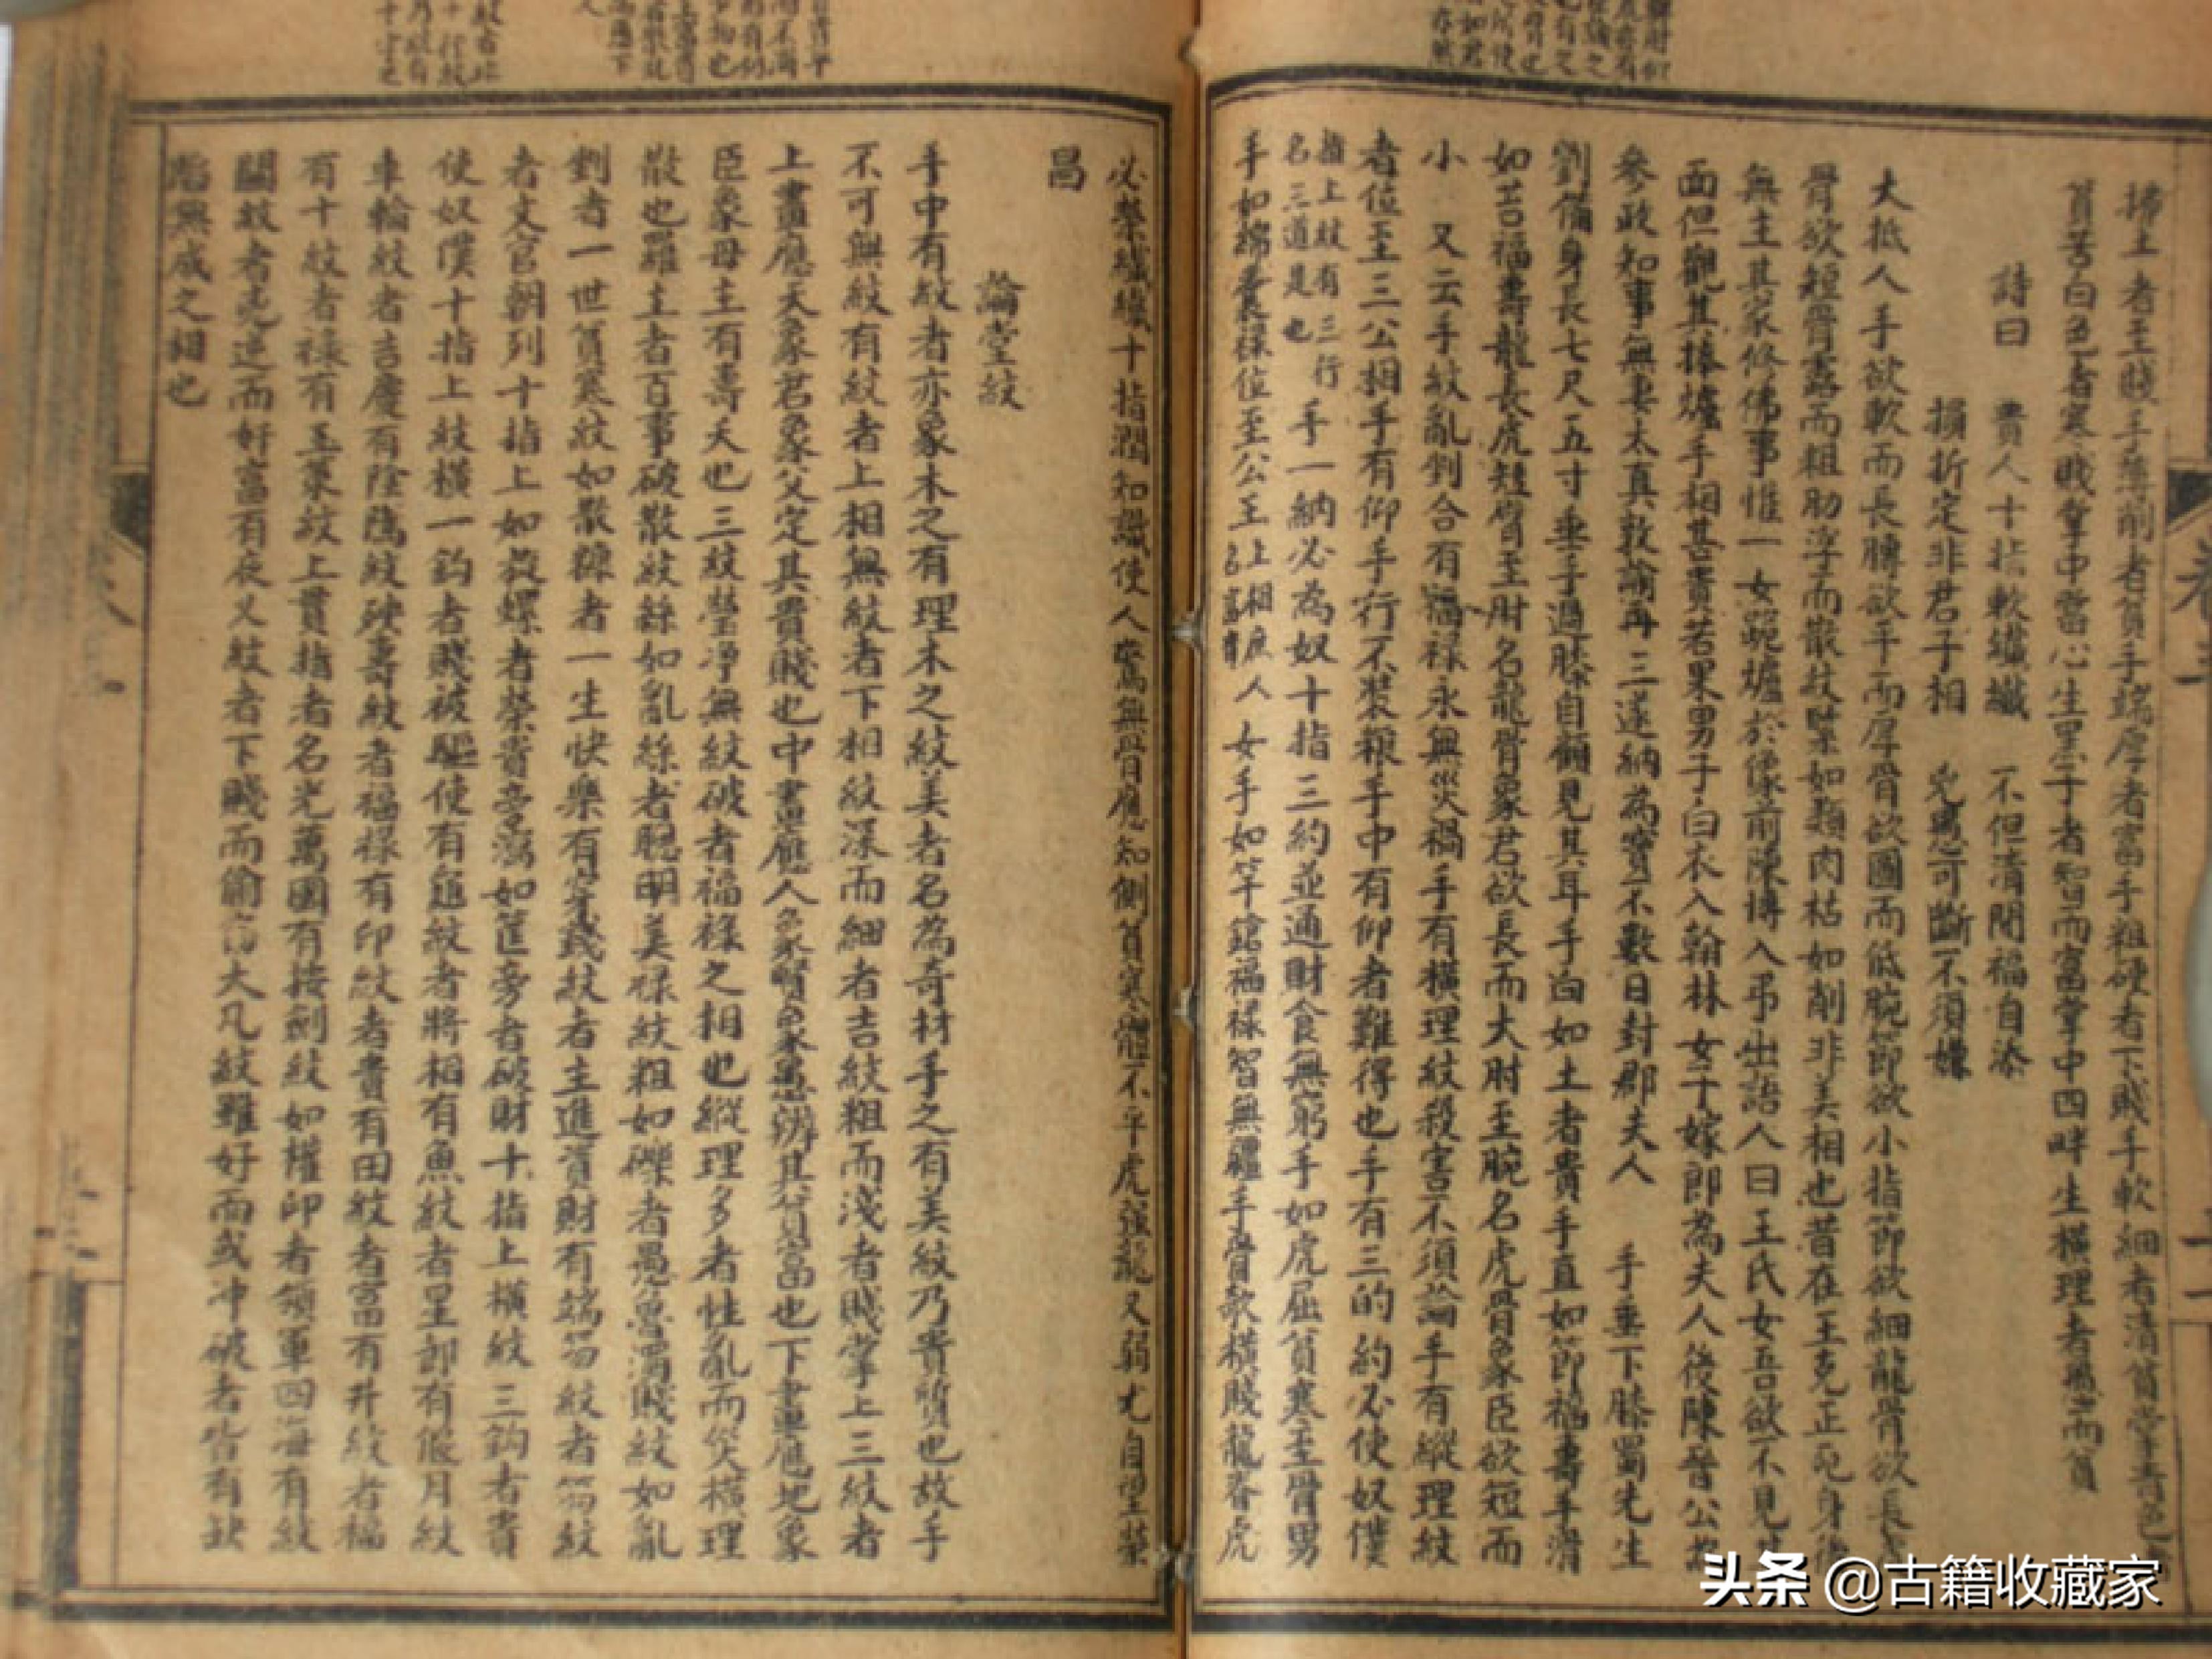 掃土者至賤手薄削者貧手端厚者富手粗硬者下賤手軟細者清貧掌青色者
貧苦白色者寒賤掌中當心生黑子者智而富掌中四畔生橫理者愚而貧
詩曰　貴人十指軟纖纖　不但清閒福自添
損折定非君子相　兇愚可斷不須嫌
大抵人手欲軟而長膊欲平而厚骨欲圓而低腕節欲小指節欲細龍骨欲長
骨欲短骨露而粗肋浮而散紋緊如類肉枯如削非美相也昔在王克正死身後
無主其家修佛事惟一女跪爐於像前陳摶入弔出語人曰王氏女吾欲不見
面但觀其捧爐手相甚貴若果男子白衣入翰林女子嫁即為夫人後陳晉公
參政知事無妻太真敦諭再三遂納為室不數日封郡夫人　手垂下膝蜀先生
劉備身長七尺五寸垂手過膝自顧見其耳手白如土者貴手直如節福壽手滑
如苔福壽龍長虎短臂至肘名龍骨象君欲長而大肘至腕名虎骨象臣欲短而
小　又云手紋亂剉合有福祿永無災禍手有橫理紋殺害不須論手有縱理紋
者位至三公相手有仰手行不裝粮手中有仰者難得也手有三的約必使奴僕
指上紋有三行
名三道是也
手一納必為奴十指三約並通財食無窮手如虎屈貧寒至骨男
手如綿裹祿位至公王
上相庶人
女手如竿鎗福祿智無疆手骨欹橫賤龍吞虎
必榮纖纖十指潤知識使人驚無骨應知側貧寒體不平虎強龍又弱尤自望榮
昌
論掌紋
手中有紋者亦象木之有理木之紋美者名為奇材手之有美紋乃貴質也故手
不可無紋有紋者上相無紋者下相紋深而細者吉紋粗而淺者賤掌上三紋者
上畫應天象君象父定其貴賤也中畫應人象賢象愚辨其貧富也下畫應地象
臣象母主有壽夭也三紋瑩淨無紋破者福祿之相也縱理多者性亂而災橫理
散也羅主者百事破散紋絲如亂絲者聰明美祿紋粗如礫者愚魯濁賤紋如亂
剉者一世貧寒紋如散糠者一生快樂有穿錢紋者主進資財有端笏紋者笏紋
者文官朝列十指上如旋螺者榮貴旁瀉如筐旁者破財十指上橫紋三鈎者貴
使奴僕十指上紋橫一鈎者賤被驅使有龜紋者將相有魚紋者星郎有偃月紋
車輪紋者吉慶有陰隲紋硤壽紋者福祿有印紋者貴有田紋者富有井紋者福
有十紋者祿有五策紋上貫指者名光萬國有按劍紋如權印者領軍四海有紋
關紋者兇逆而好富有夜叉紋者下賤而偷盜大凡紋雖好而或冲破者皆有缺
陷無成之相也
头条 @古籍收藏家